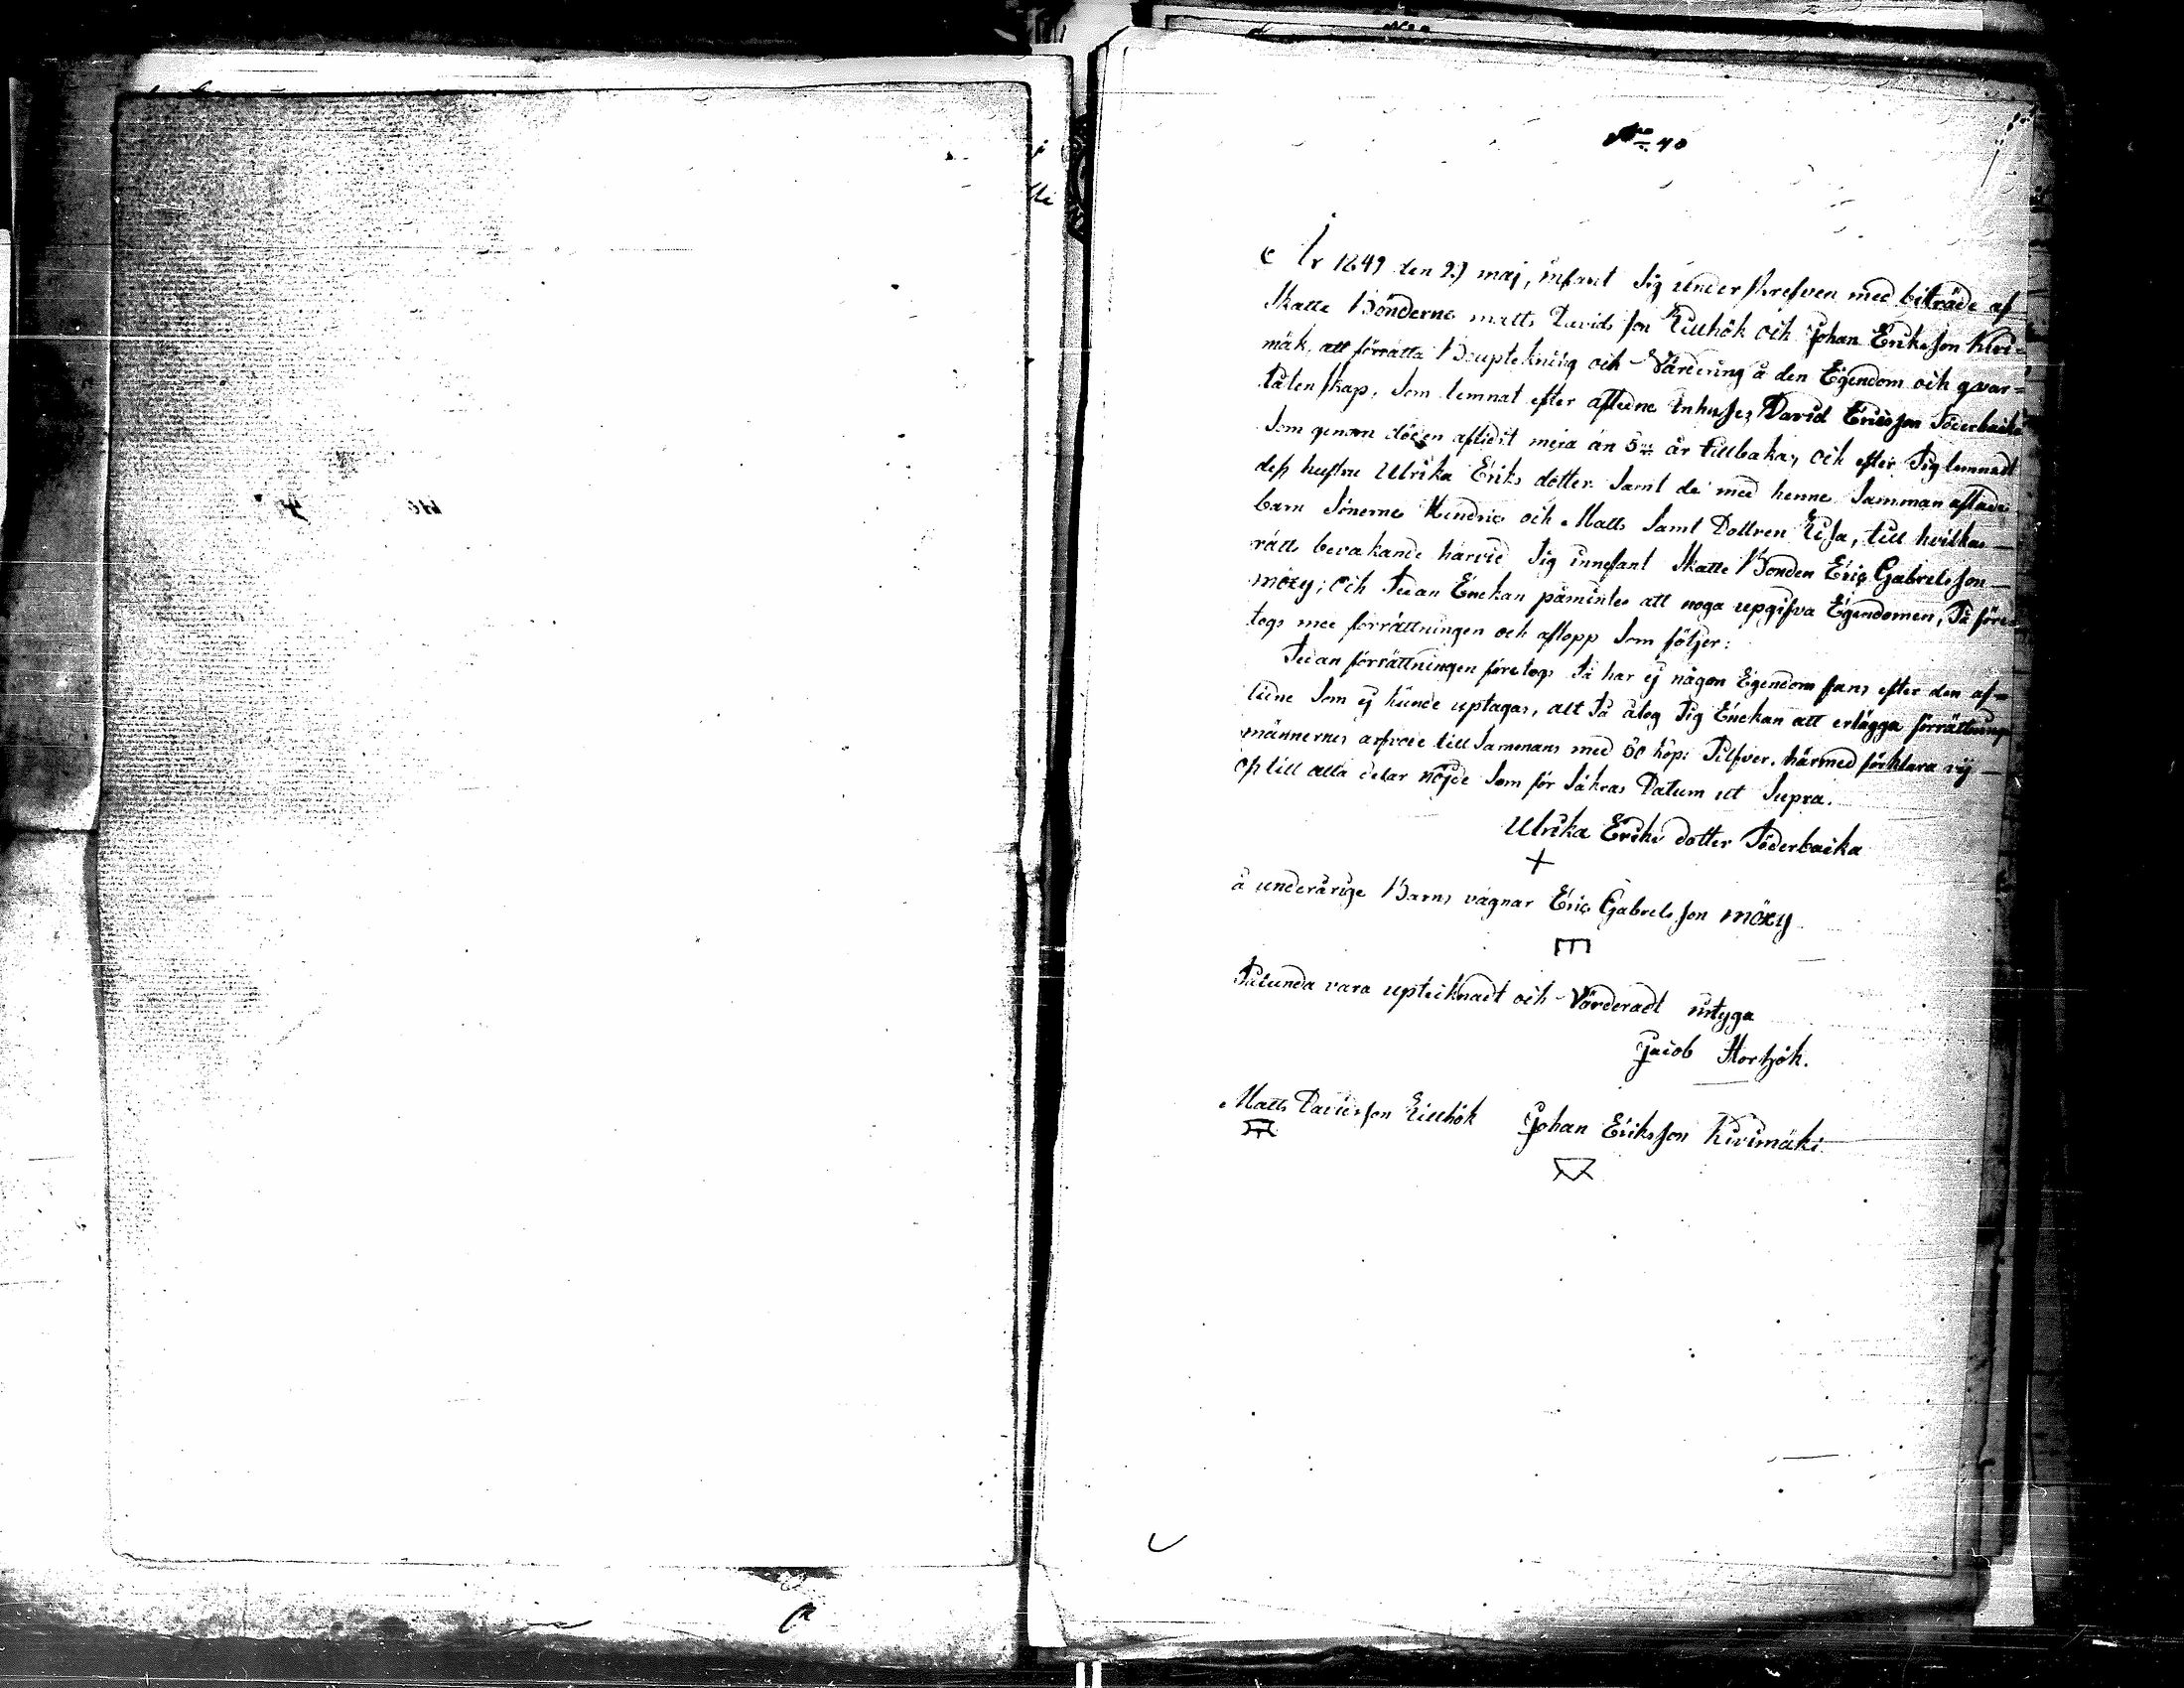 No 40
År 1849 den 29 maj, infant Sig underskrefven med biträde af
Skatte Bönderne matts Davids son Lillhök och Johan Eriks son Kivi-
mäk, att förrätta Bouptekning och Värdering å den Egendom och qvar-
låtenskap, Som lemnat efter aflidne Inhyses David Ericsson Söderbacka
Som genom döden aflidit mera än 5 år tillbaka, och efter Sig lemnadt
dess hustru Ulrika Eriks dotter Samt de med henne Samman aflade
barn Sönerne Hindric och Matts Samt Dottren Lisa, till hvilkas
rätts bevakande härvid Sig innefant Skatte Bonden Eric Gabrielsson
möxy; och Sedan Enckan påmintes att noga upgifva Egendomen, Så före-
togs med förrättningen och aflopp Som följer:
Sedan förrättningen företogs Så har ej någon Egendom fans efter den af-
lidne Som ej kunde uptagas, alt Så åtog Sig Enckan att erlägga förrättnings
männernes arfvode till Sammans med 60 kop: Silfver. härmed förklara vij
oss till alla delar nöjde Som för Säkras Datum ut Supra.
Ulrika Eriks dotter Söderbacka
+
å underårige Barns vägnar Eric Gabrels son möxy
Sålunda vara uptecknadt och Värderadt intyga
Jacob Stortzök.
Matts Davidsson Lillhök Johan Eriksson Kivimäki